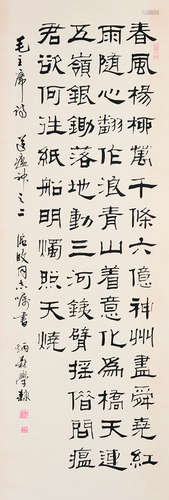 春風楊柳萬千條六億神州盡舜堯紅
雨隨心翻作浪青山着意化為橋天連
五嶺銀鋤落地動三河鐵臂搖借問瘟
君欲何往紙船明燭照天燒
毛主席詩 送瘟神之二 同志囑書 炳森學隸